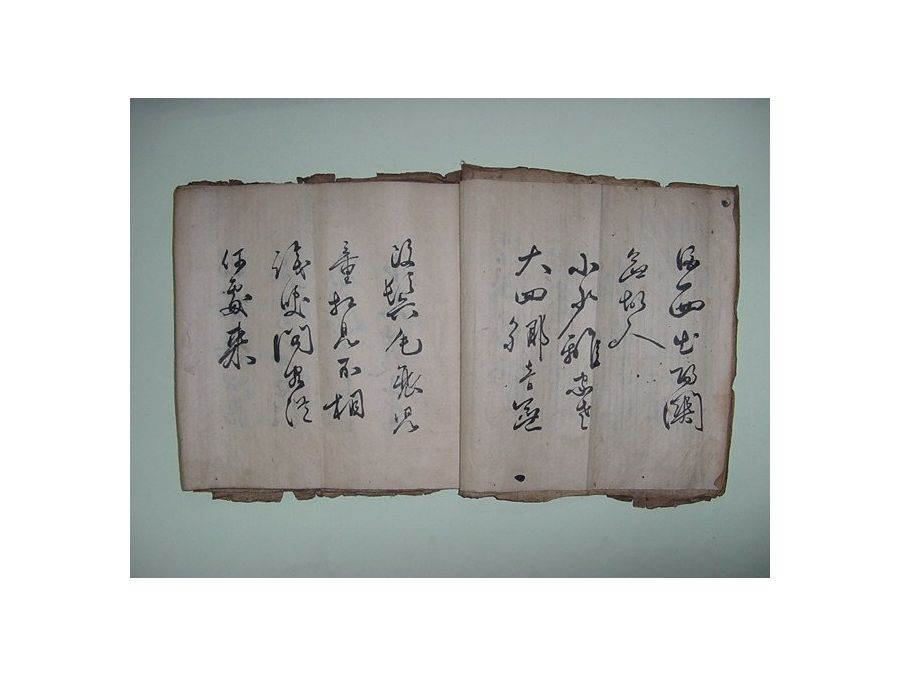 酒西出陽關
無故人
少小離家老
大回鄉音無
改鬢毛衰兒
童相見不相
識笑問客從
何處来